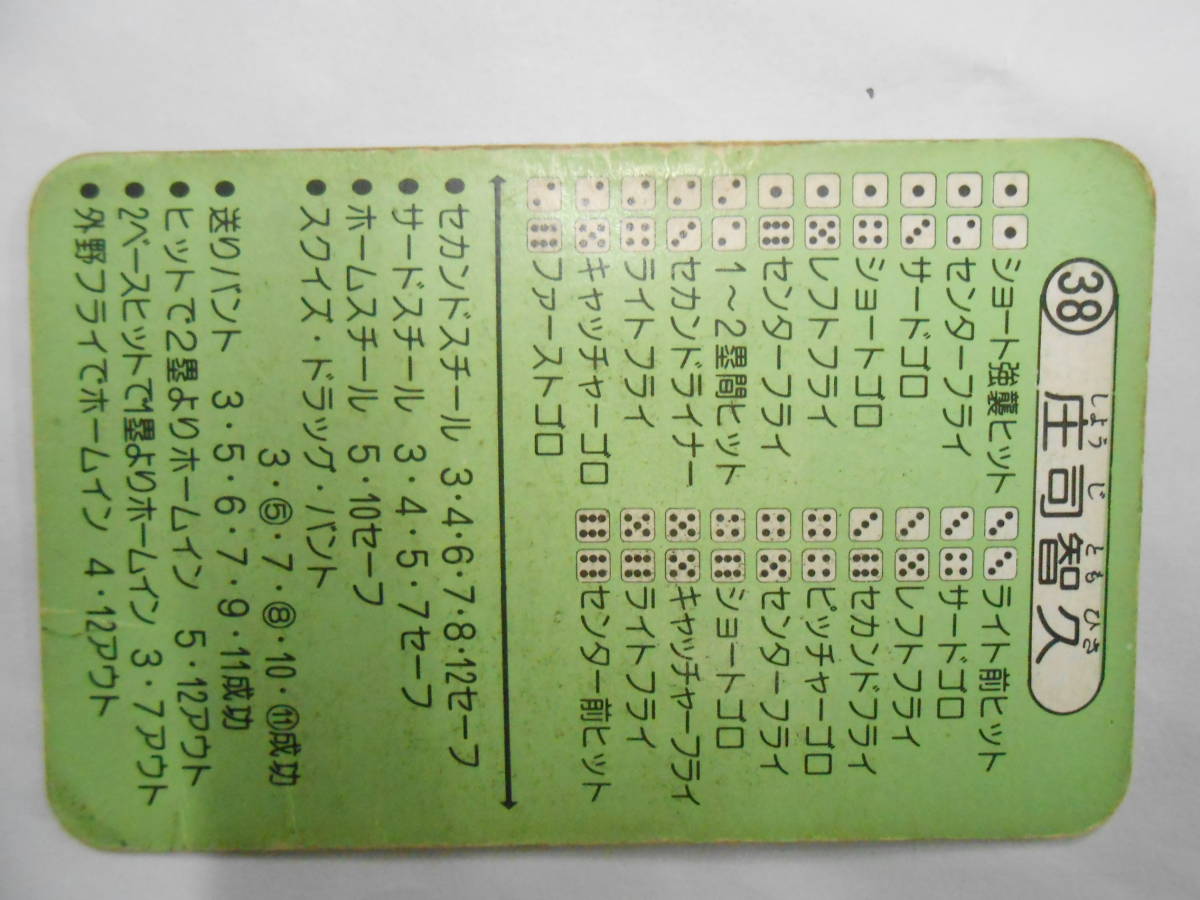 38 庄司智久
しょうじともひさ
ショート強襲ヒット
センターフライ
サードゴロ
ショートゴロ
レフトフライ
センターフライ
1~2塁間ヒット
セカンドライナー
ライトフライ
キャッチャーゴロ
ファーストゴロ
ライト前ヒット
サードゴロ
レフトフライ
セカンドフライ
ピッチャーゴロ
センターフライ
ショートゴロ
キャッチャーフライ
ライトフライ
センター前ヒット
●セカンドスチール 3・4・6・7・8・12セーフ
●サードスチール 3・4・5・7セーフ
●ホームスチール 5・10セーフ
●スクイズ・ドラッグ・バント
3・⑤・7・⑧・10・⑪成功
●送りバント 3・5・6・7・9・11成功
●ヒットで2塁よりホームイン 5・12アウト
●2ベースヒットで1塁よりホームイン 3・7アウト
●外野フライでホームイン 4・12アウト